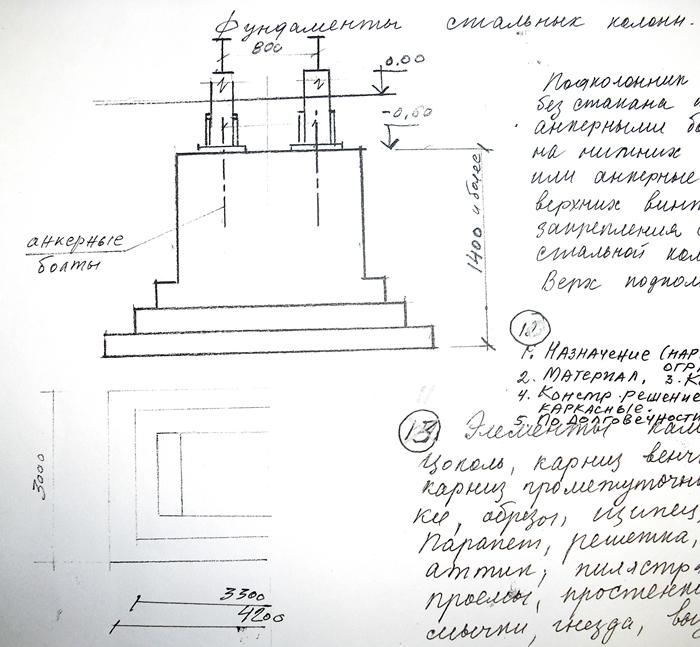 Фундаменты стальных колонн.
800
0.00
-0,60
1400 и более
анкерные
болты
Подколонник
без стакана
анкерными
на нижних
или анкерные
верхних
закрепления
стальной
Верх
12
1. Назначение
2. Материал, 3.
4. Констр. решение
каркасные.
5. По долговечности
13. Элементы
Цоколь, карниз
карниз промежуточн
обрезы, щипец,
Парапет, решетка,
аттик, пилястр
проемы, простенк
гнезда,
3000
3300
4200